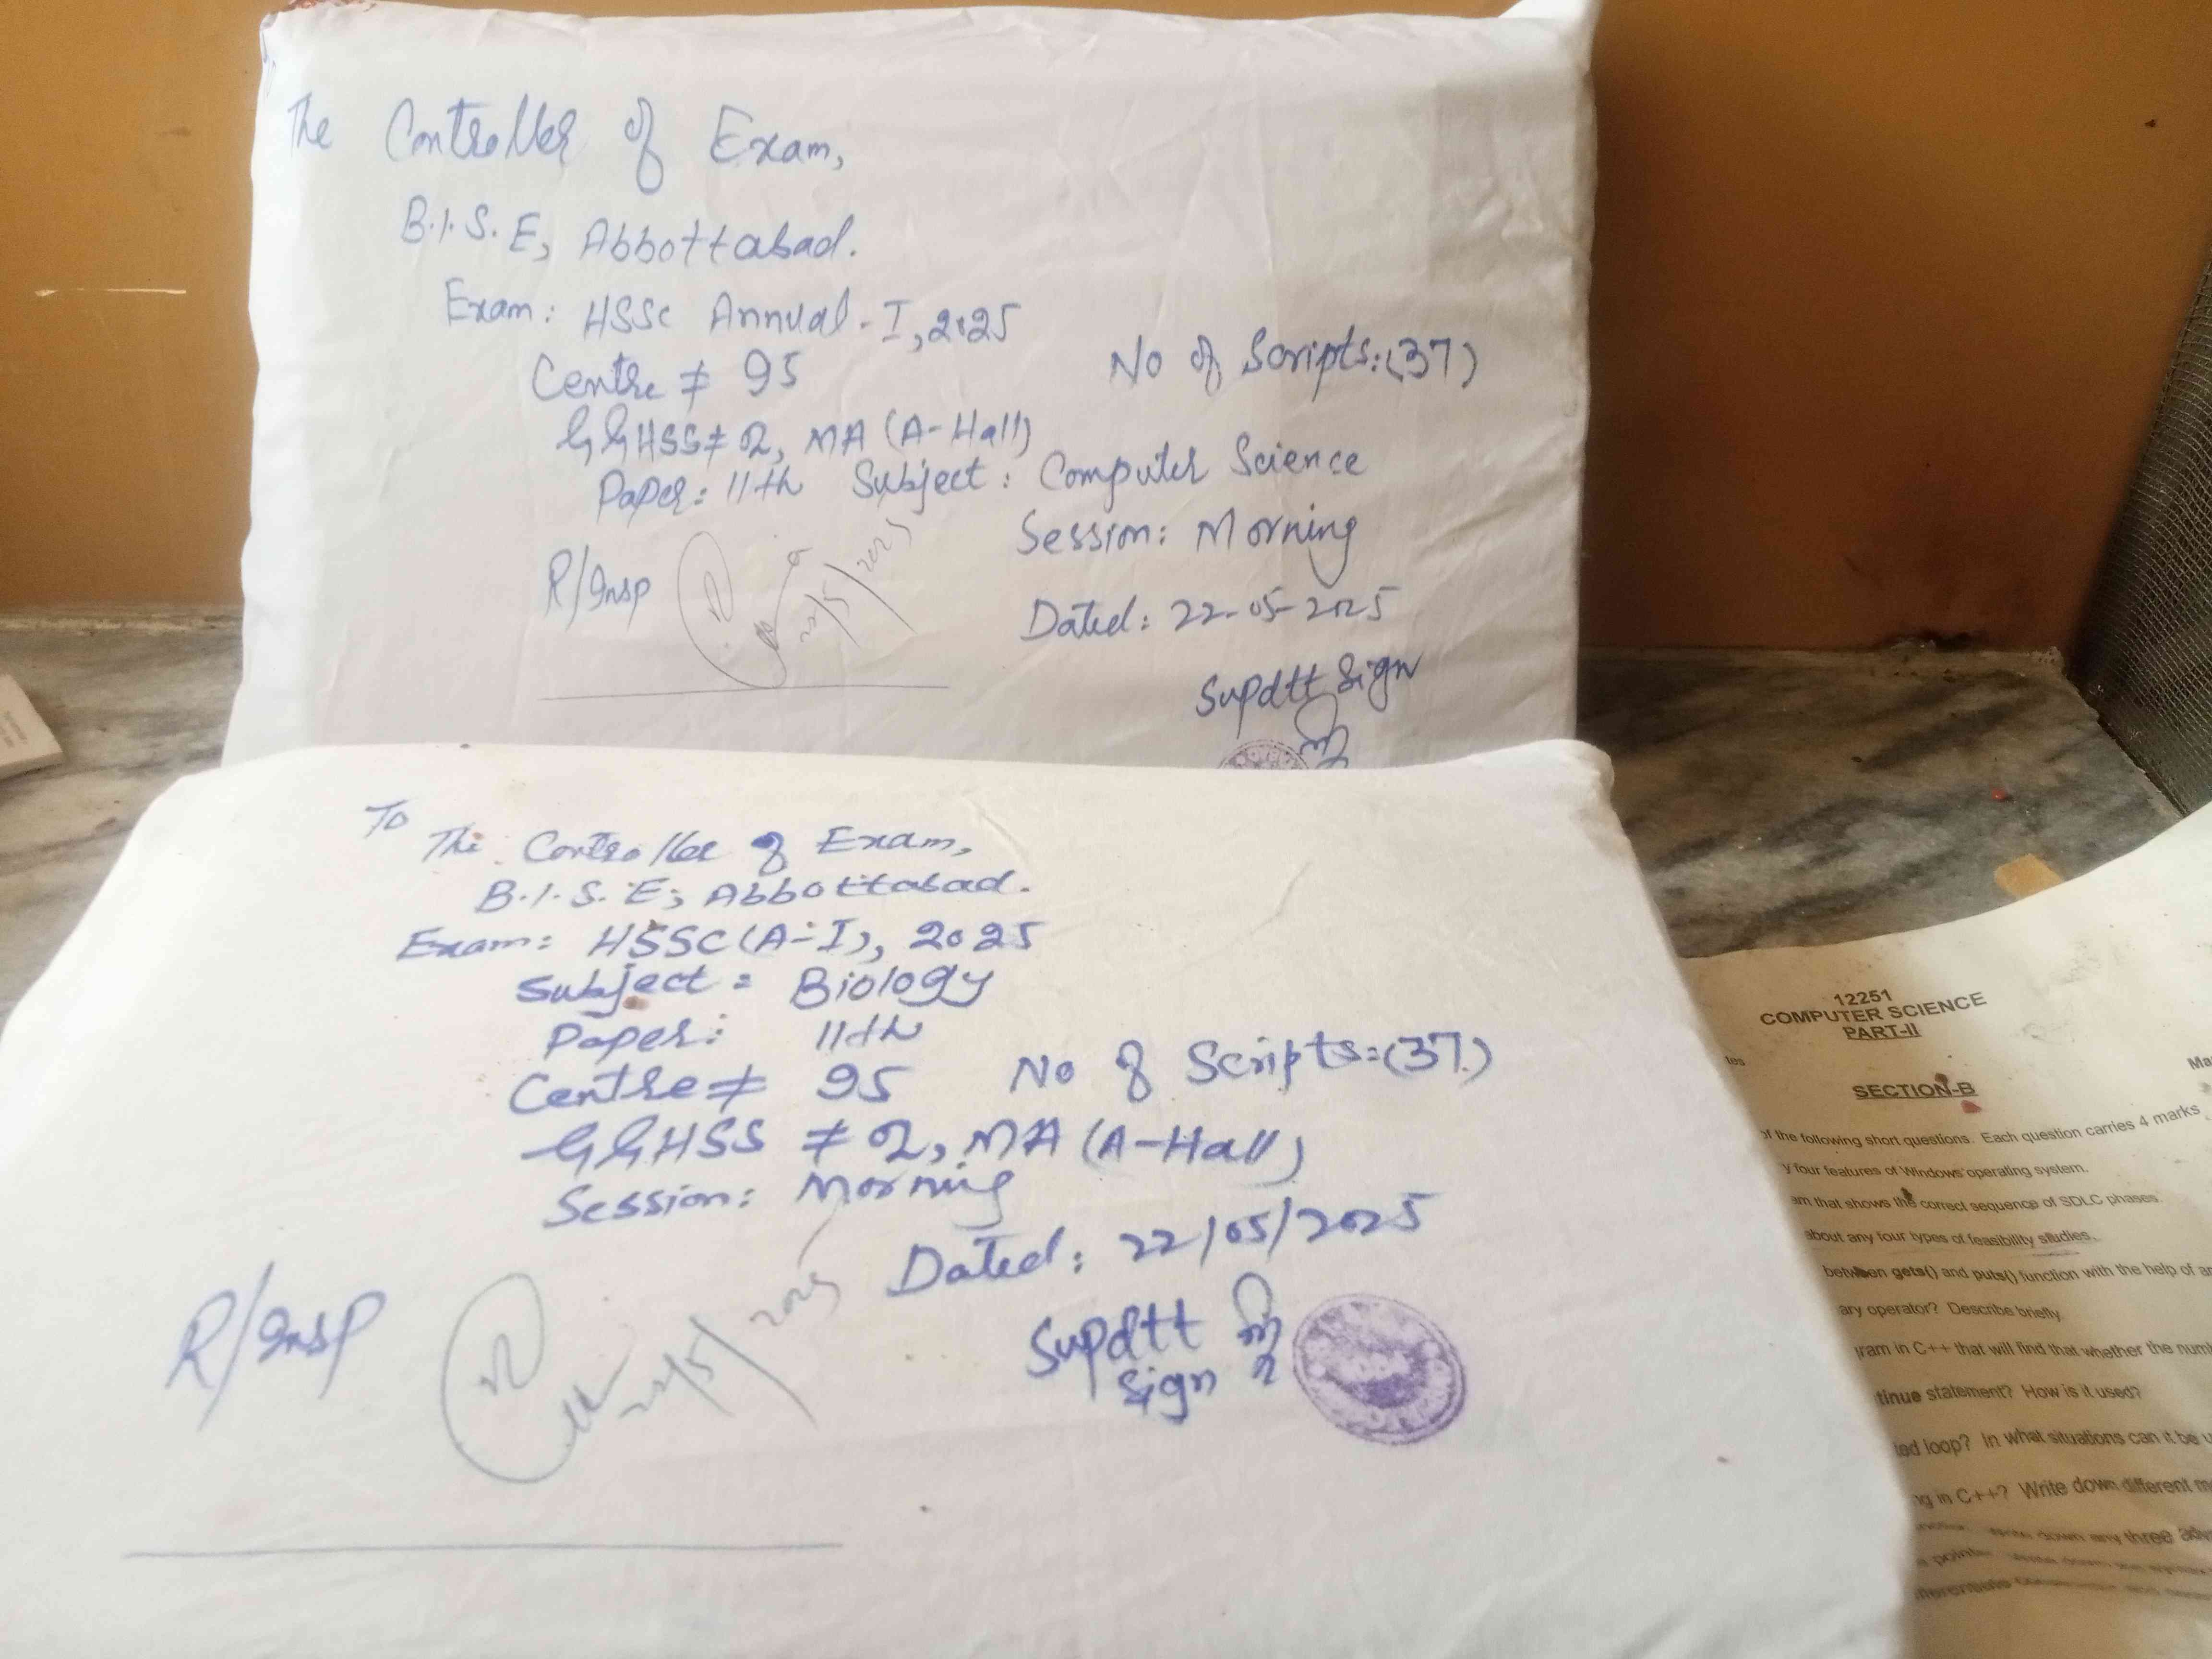 The Controller of Exam,
B.I.S.E, Abbottabad.
Exam: HSSC Annual-I, 2025
Centre # 95
No of Scripts:(37)
GGHSS # 2, MA (A-Hall)
Paper: 11th Subject: Computer Science
Session: Morning
R/Insp
22/5/2025
Dated: 22-05-2025
Supdtt Sign
To
The Controller of Exam,
B.I.S.E, Abbottabad.
Exam: HSSC(A-I), 2025
Subject: Biology
Paper: 11th
Centre # 95 No of Scripts:(37)
GGHSS # 2, MA (A-Hall)
Session: Morning
Dated: 22/05/2025
R/Insp
22/5/2025
Supdtt
Sign
12251
COMPUTER SCIENCE
PART-II
SECTION-B
of the following short questions. Each question carries 4 marks
y four features of Windows operating system.
am that shows the correct sequence of SDLC phases.
about any four types of feasibility studies.
between gets() and puts() function with the help of
ary operator? Describe briefly.
ram in C++ that will find that whether the
tinue statement? How is it used?
loop? In what situations can it be
in C++? Write down different
down any three